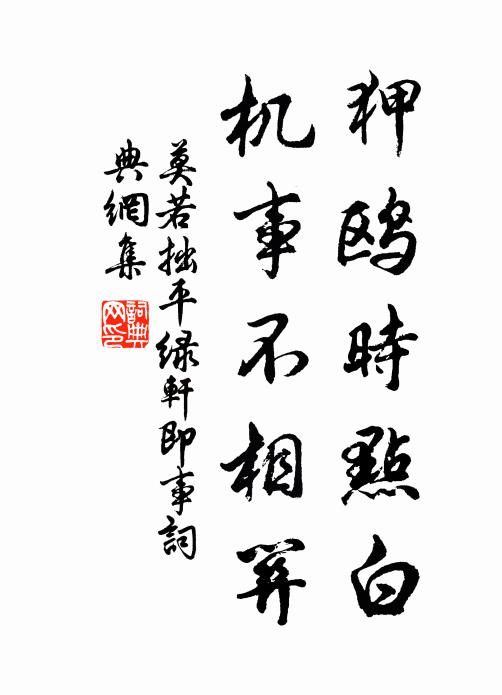 狎鸥時點白
机事不相關
莫若拙平緑軒即事詞
典網集
詞典
网印